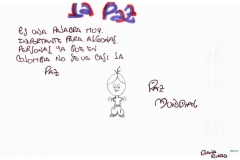 La Paz
ES UNA PALABRA MUY
IMPORTANTE PARA ALGUNAS
PERSONAS YA QUE EN
COLOMBIA NO SE VE CASI LA
PAZ
PAZ
MUNDIAL